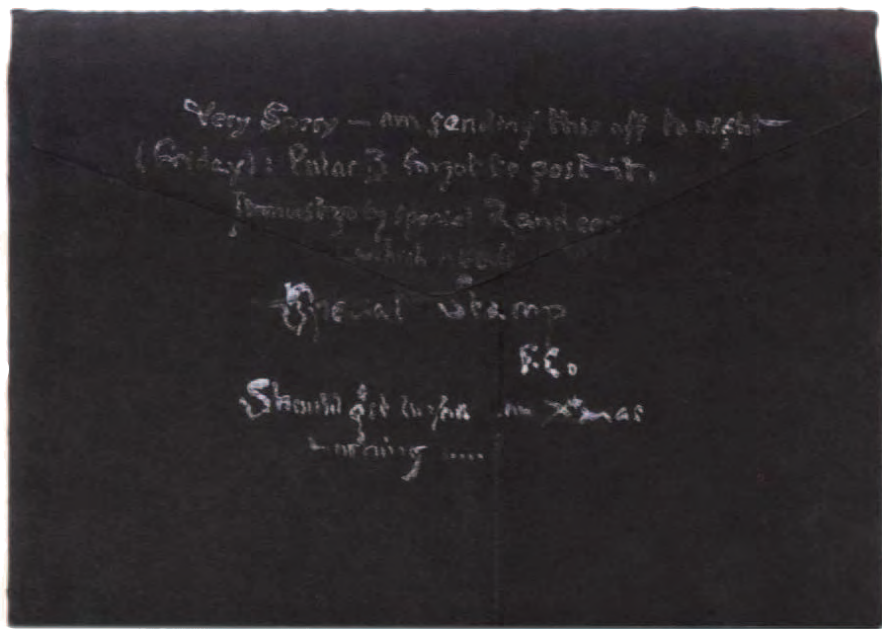 Very Sorry — am sending this off to night
(Friday): Polar B forgot to post it.
It must go by special Reindeer
which needs
Special Stamp
F.C.
Should get to you on Xmas
morning ....